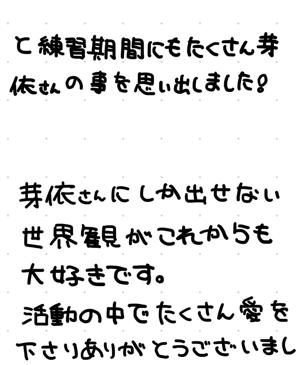 と練習期間にもたくさん芽
依さんの事を思い出しました!
芽依さんにしか出せない
世界観がこれからも
大好きです。
活動の中でたくさん愛を
下さりありがとうございまし